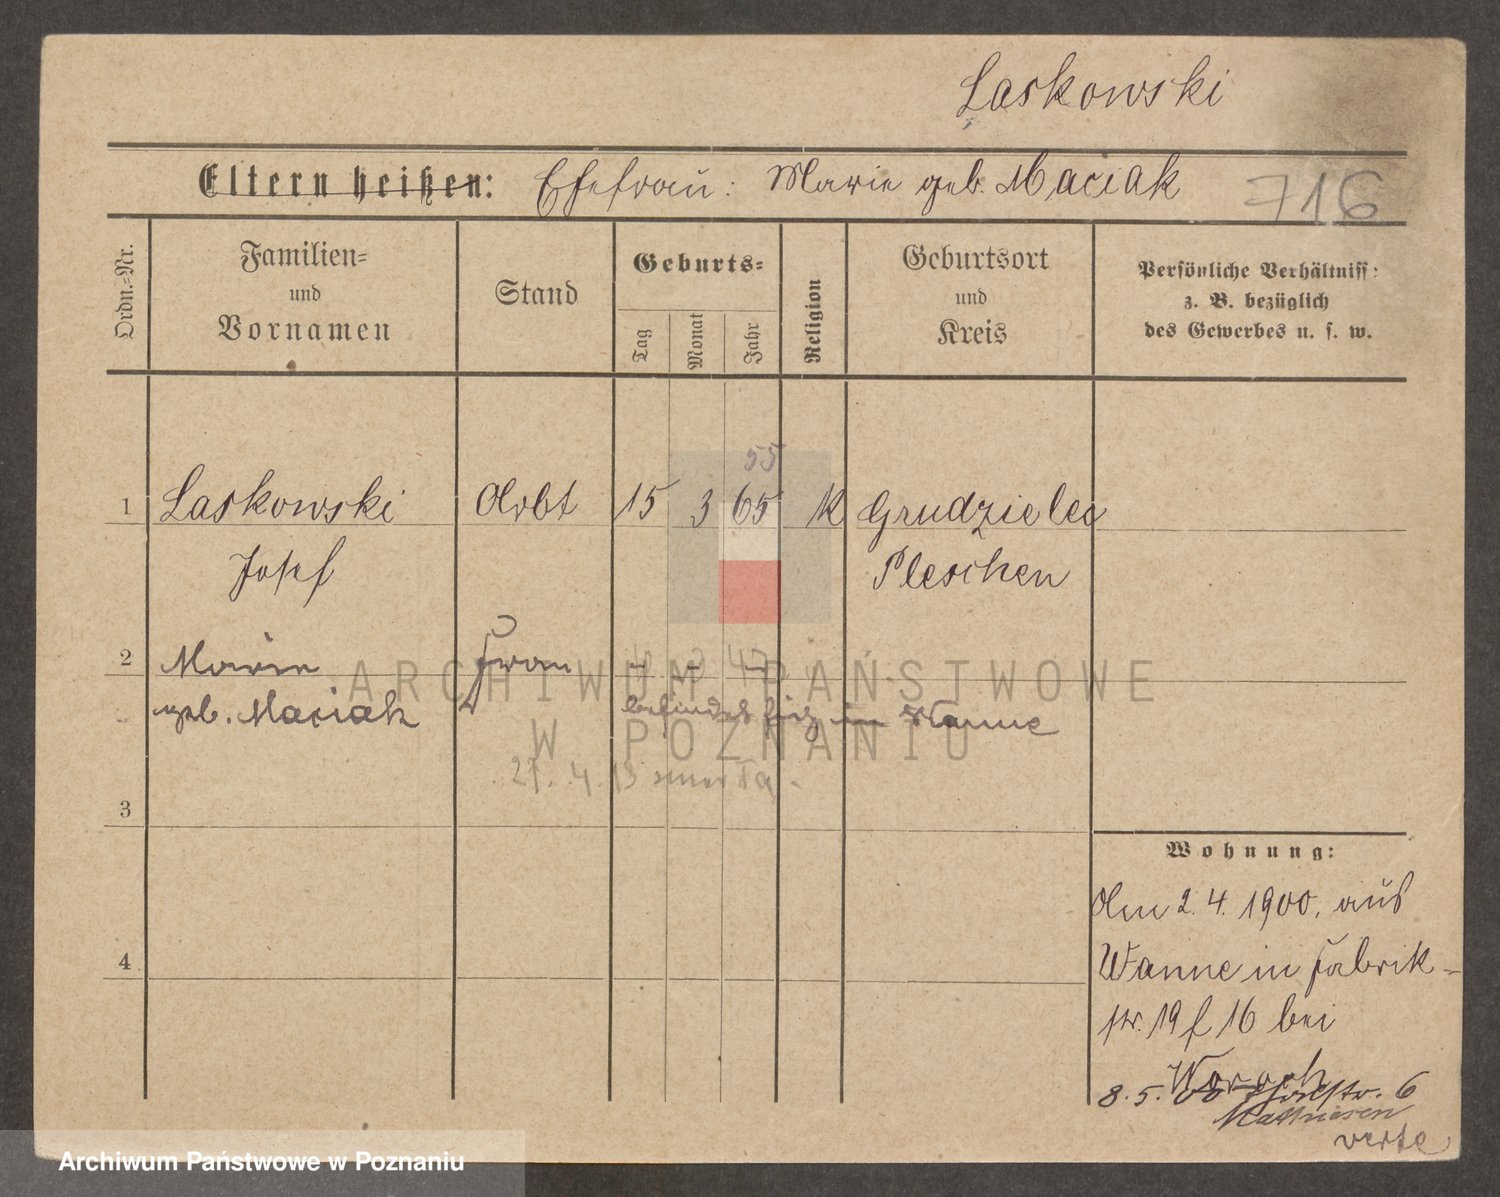 Laskowski
Eltern heißen: Ehefrau: Marie geb. Maciak
716
Ordn.-Nr.
Familien-
und
Vornamen
Stand
Geburts-
Tag
Monat
Jahr
Religion
Geburtsort
und
Kreis
Persönliche Verhältniss:
z. B. bezüglich
des Gewerbes u. s. w.
55
1 Laskowski Arbt 15 3 65 K Grudzielec
Josef Pleschen
2 Marie Frau 47
geb. Maciak befindet sich in Wanne
4.13 zmarła.
3
Wohnung:
Am 2.4.1900. aus
Wanne in Fabrik-
4
str. 19 f 16 bei
8.5.00 Thalstr. 6
Mathiesen
verte
ARCHIWUM PAŃSTWOWE
W POZNANIU
Archiwum Państwowe w Poznaniu